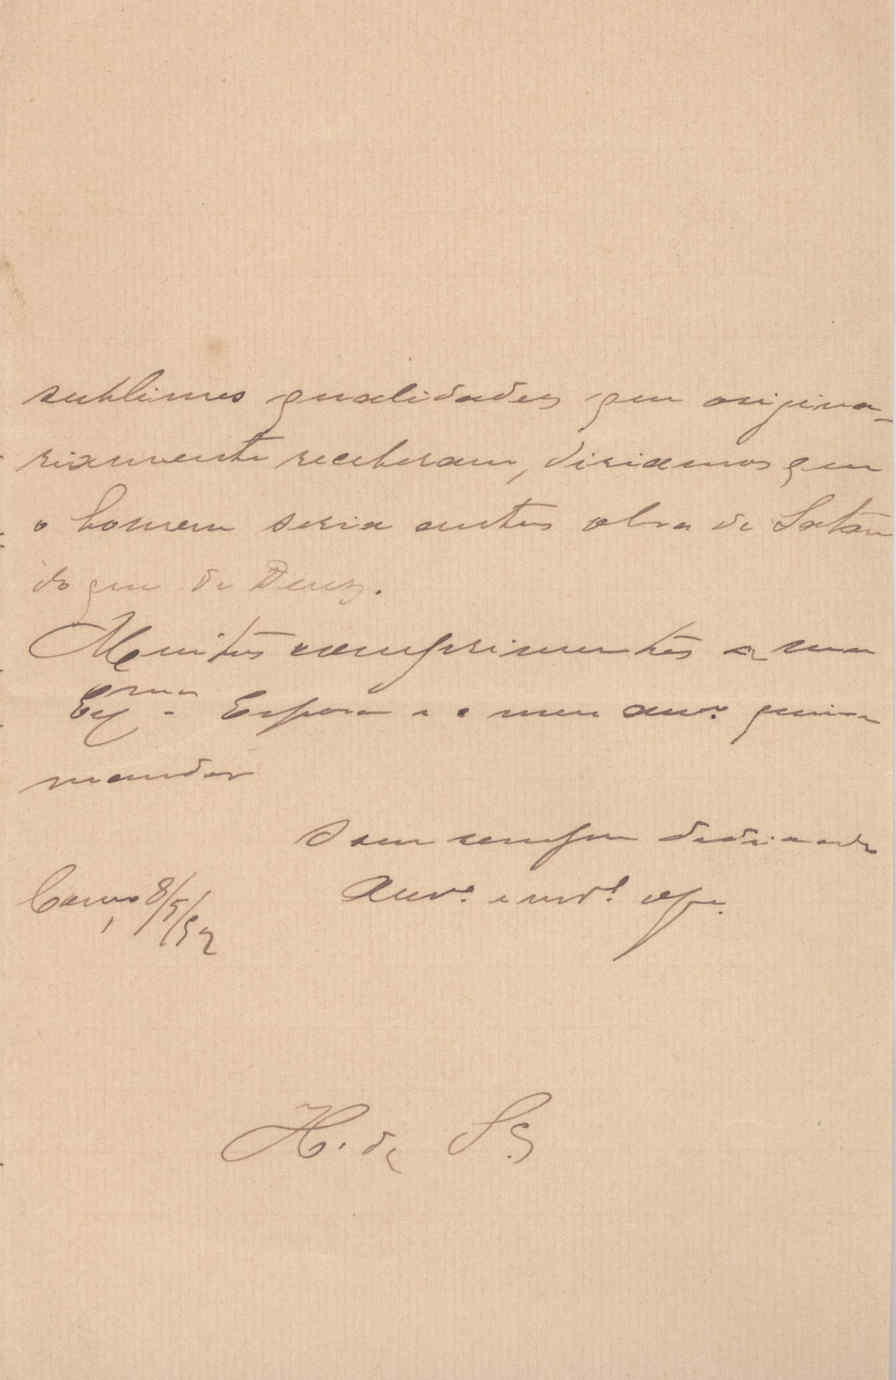 sublimes qualidades que origina-
riamente receberam, diriamos que
o homem seria antes obra de Satan
do que de Deus.
Muitos comprimentos a sua
Ex.ma Espoza e o meu am.o queira
mandar
Sou sempre dedicado
Am.o e
8/5/92
H. de S.